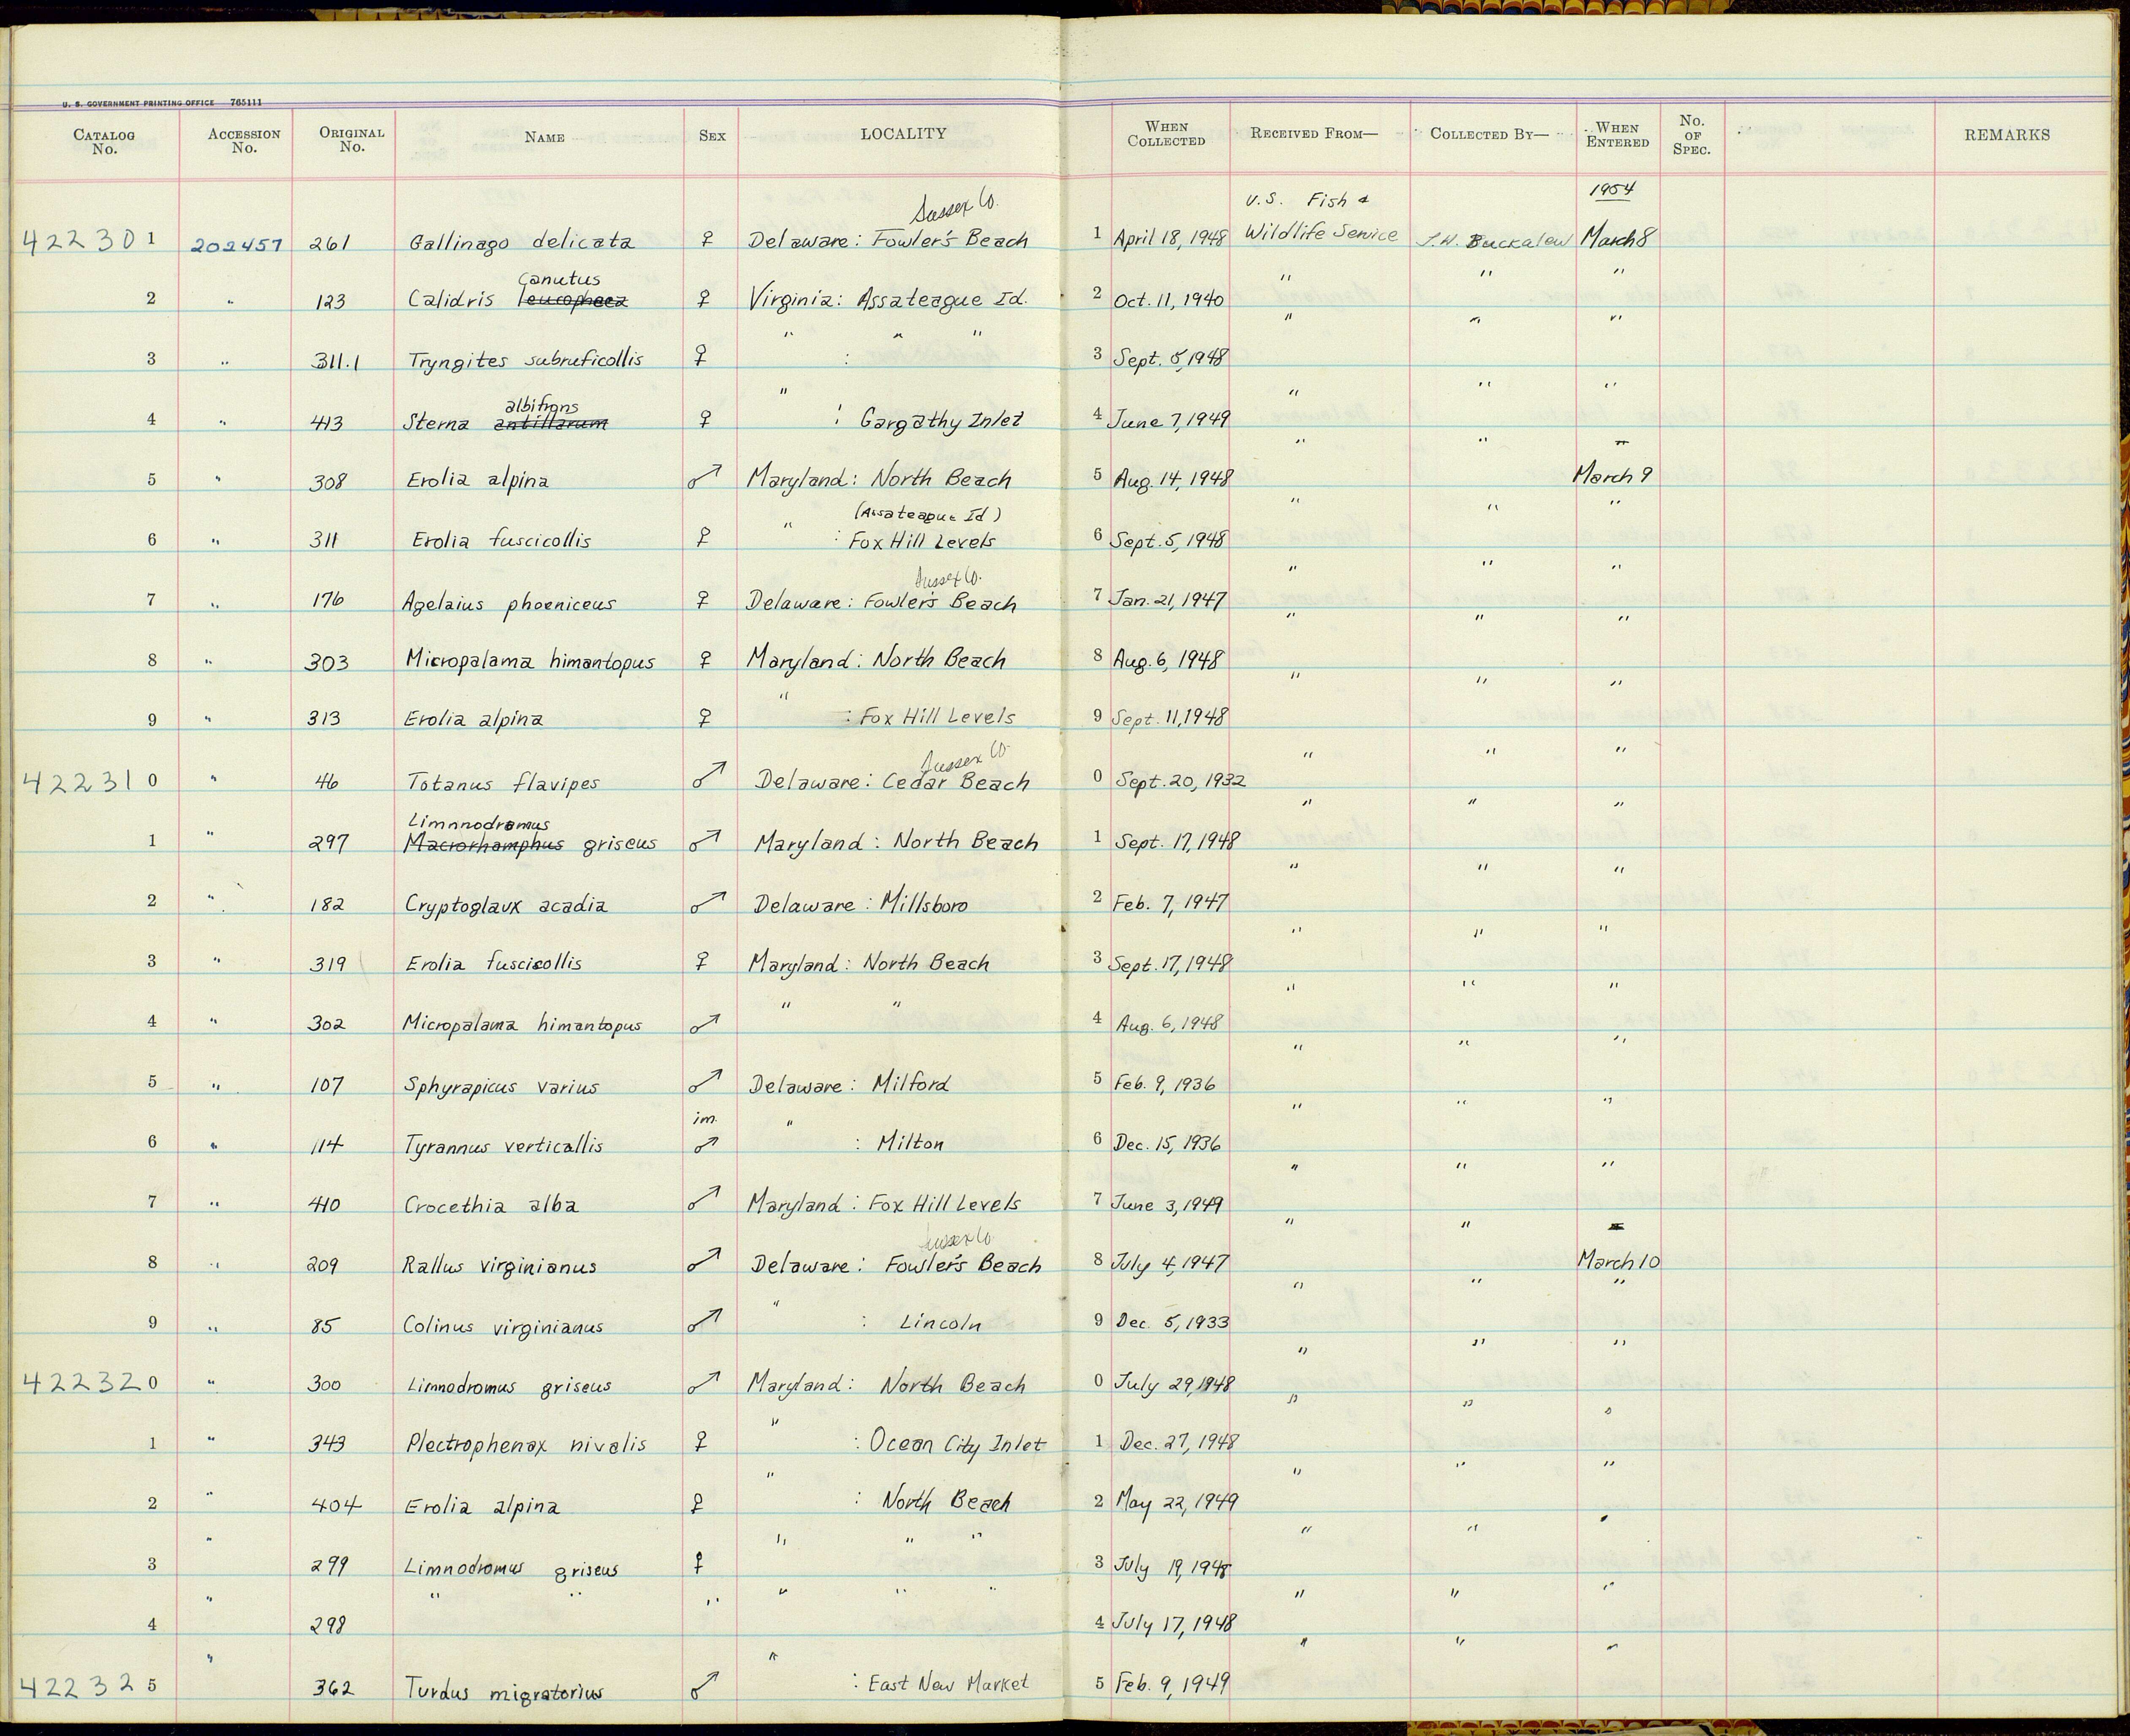 U. S. GOVERNMENT PRINTING OFFICE 765111
CATALOG No. ACCESSION No. ORIGINAL No. NAME SEX LOCALITY WHEN COLLECTED RECEIVED FROM— COLLECTED BY— WHEN ENTERED No. OF SPEC. REMARKS
Sussex Co. U.S. Fish & 1954
422301 202457 261 Gallinago delicata ♀ Delaware: Fowler's Beach 1 April 18, 1948 Wildlife Service J.H. Buckalew March 8
canutus " " "
2 " 123 Calidris leucophaea ♀ Virginia: Assateague Id. 2 Oct. 11, 1940
" " " " " "
3 " 311.1 Tryngites subruficollis ♀ : 3 Sept. 5, 1948
albifrons " " " "
4 " 413 Sterna antillarum ♀ : Gargathy Inlet 4 June 7, 1949
" "
5 " 308 Erolia alpina ♂ Maryland: North Beach 5 Aug. 14, 1948 March 9
" (Assateague Id) " " "
6 " 311 Erolia fuscicollis ♀ : Fox Hill Levels 6 Sept. 5, 1948
Sussex Co. " " "
7 " 176 Agelaius phoeniceus ♀ Delaware: Fowler's Beach 7 Jan. 21, 1947
" " "
8 " 303 Micropalama himantopus ♀ Maryland: North Beach 8 Aug. 6, 1948
" " " "
9 " 313 Erolia alpina ♀ : Fox Hill Levels 9 Sept. 11, 1948
Sussex Co. " " "
422310 " 46 Totanus flavipes ♂ Delaware: Cedar Beach 0 Sept. 20, 1932
Limnnodromus " " "
1 " 297 Macrorhamphus griseus ♂ Maryland: North Beach 1 Sept. 17, 1948
" " "
2 " 182 Cryptoglaux acadia ♂ Delaware: Millsboro 2 Feb. 7, 1947
" " "
3 " 319 Erolia fuscicollis ♀ Maryland: North Beach 3 Sept. 17, 1948
" " " " "
4 " 302 Micropalama himantopus ♂ 4 Aug. 6, 1948
" " "
5 " 107 Sphyrapicus varius ♂ Delaware: Milford 5 Feb. 9, 1936
im. " " " "
6 " 114 Tyrannus verticallis ♂ : Milton 6 Dec. 15, 1936
" " "
7 " 410 Crocethia alba ♂ Maryland: Fox Hill Levels 7 June 3, 1949
Sussex Co " "
8 " 209 Rallus virginianus ♂ Delaware: Fowler's Beach 8 July 4, 1947 March 10
" " " "
9 " 85 Colinus virginianus ♂ : Lincoln 9 Dec. 5, 1933
" " "
422320 " 300 Limnodromus griseus ♂ Maryland: North Beach 0 July 29, 1948
" " " "
1 " 343 Plectrophenax nivalis ♀ : Ocean City Inlet 1 Dec. 27, 1948
" " " "
2 " 404 Erolia alpina ♀ : North Beach 2 May 22, 1949
" " " " " " "
3 299 Limnodromus griseus ♀ 3 July 19, 1948
" " " " " " " " " "
4 298 4 July 17, 1948
" " " " "
422325 362 Turdus migratorius ♂ : East New Market 5 Feb. 9, 1949